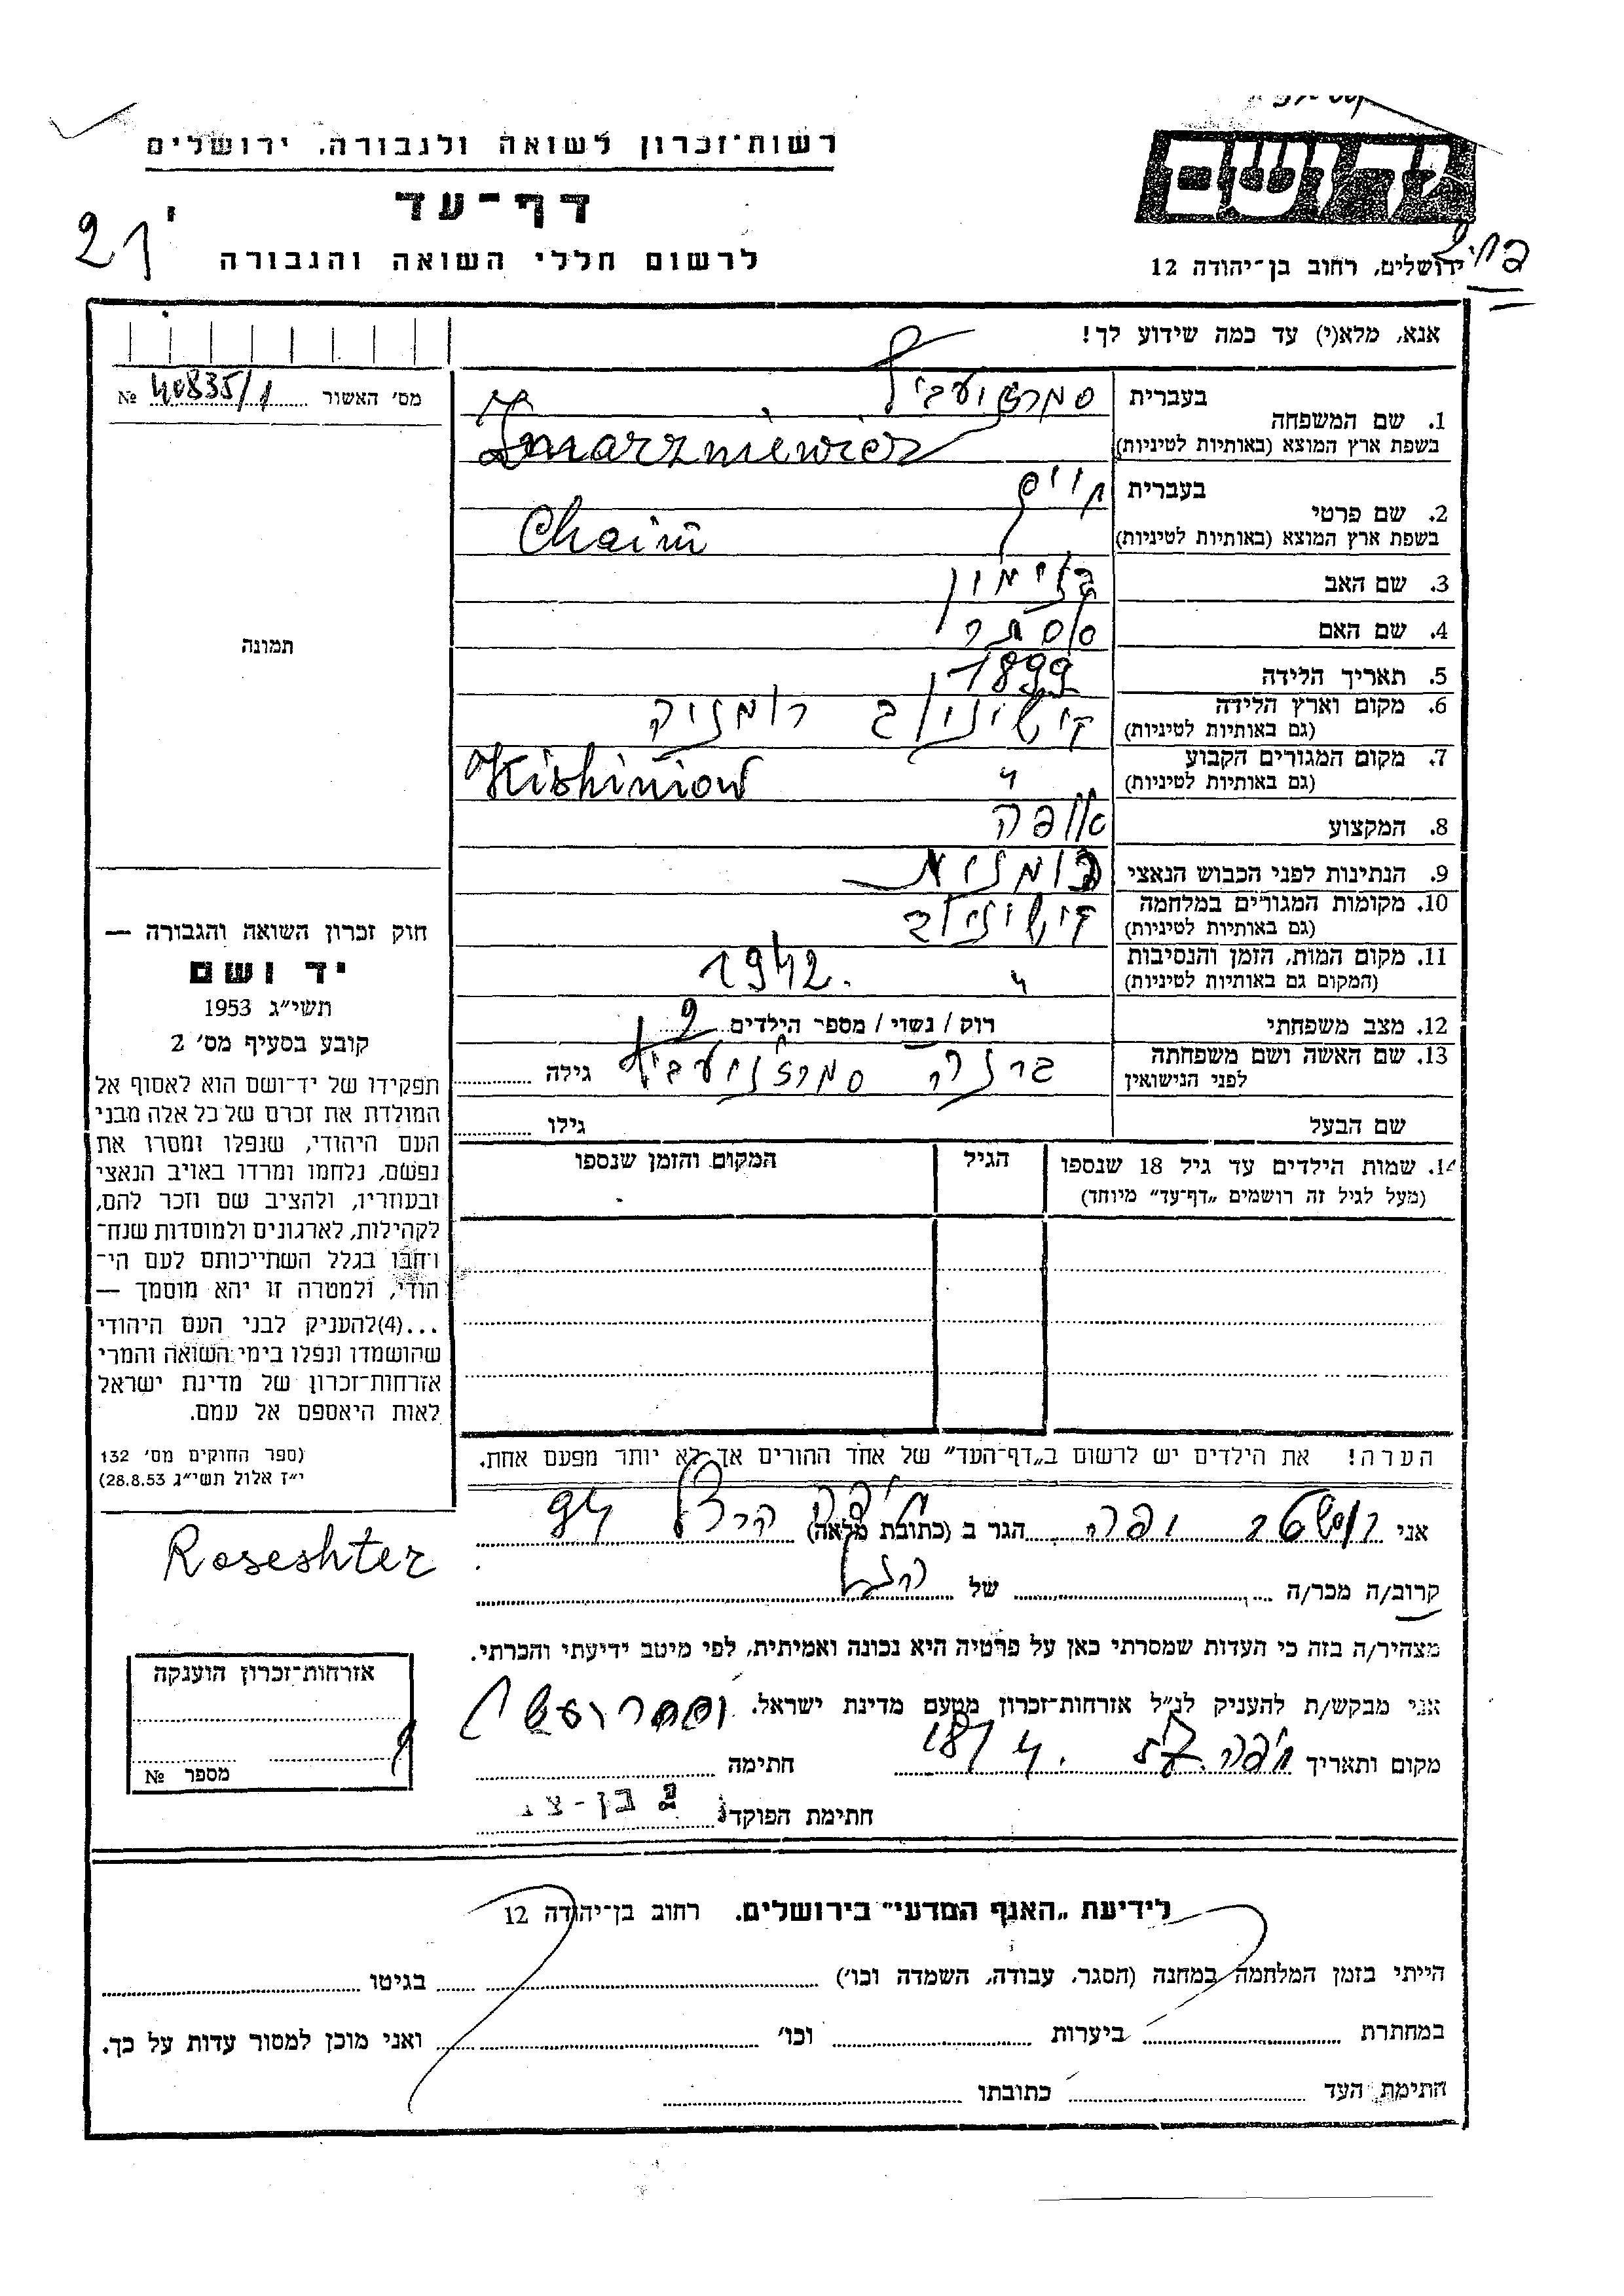 רשות־זכרון לשואה ולגבורה, ירושלים
יד ושם
דף־עד
לרשום חללי השואה והגבורה
ירושלים, רחוב בן־יהודה 12
אנא, מלא(י) עד כמה שידוע לך!
מס׳ האשור 40835/1 №
1. שם המשפחה בעברית
בשפת ארץ המוצא (באותיות לטיניות)
2. שם פרטי בעברית חיים
בשפת ארץ המוצא (באותיות לטיניות) Chaim
3. שם האב
4. שם האם אסתר
5. תאריך הלידה 1899
6. מקום וארץ הלידה קישינוב
(גם באותיות לטיניות)
7. מקום המגורים הקבוע " Kishiniow
(גם באותיות לטיניות)
8. המקצוע אופה
9. הנתינות לפני הכבוש הנאצי
10. מקומות המגורים במלחמה קישינוב
(גם באותיות לטיניות)
11. מקום המות, הזמן והנסיבות " 1942.
(המקום גם באותיות לטיניות)
12. מצב משפחתי רווק / נשוי / מספר הילדים 2
13. שם האשה ושם משפחתה גילה
לפני הנישואין
שם הבעל גילו
14. שמות הילדים עד גיל 18 שנספו הגיל המקום והזמן שנספו
(מעל לגיל זה רושמים „דף־עד” מיוחד)
הערה! את הילדים יש לרשום ב„דף־העד” של אחד ההורים אך לא יותר מפעם אחת.
תמונה
חוק זכרון השואה והגבורה —
יד ושם
תשי״ג 1953
קובע בסעיף מס׳ 2
תפקידו של יד־ושם הוא לאסוף אל
המולדת את זכרם של כל אלה מבני
העם היהודי, שנפלו ומסרו את
נפשם, נלחמו ומרדו באויב הנאצי
ובעוזריו, ולהציב שם וזכר להם,
לקהילות, לארגונים ולמוסדות שנח־
רבו בגלל השתייכותם לעם הי־
הודי, ולמטרה זו יהא מוסמך —
...(4)להעניק לבני העם היהודי
שהושמדו ונפלו בימי השואה והמרי
אזרחות־זכרון של מדינת ישראל
לאות היאספם אל עמם.
(ספר החוקים מס׳ 132
י״ז אלול תשי״ג 28.8.53)
אני הגר ב (כתובת מלאה) חיפה הרצל 94
Roseshter
קרוב/ה מכר/ה של
מצהיר/ה בזה כי העדות שמסרתי כאן על פרטיה היא נכונה ואמיתית, לפי מיטב ידיעתי והכרתי.
אני מבקש/ת להעניק לנ״ל אזרחות־זכרון מטעם מדינת ישראל.
מקום ותאריך חיפה חתימה
חתימת הפוקד
אזרחות־זכרון הוענקה
מספר №
לידיעת „האגף המדעי” בירושלים. רחוב בן־יהודה 12
הייתי בזמן המלחמה במחנה (הסגר, עבודה, השמדה וכו׳) בגיטו
במחתרת ביערות וכו׳ ואני מוכן למסור עדות על כך.
חתימת העד כתובתו